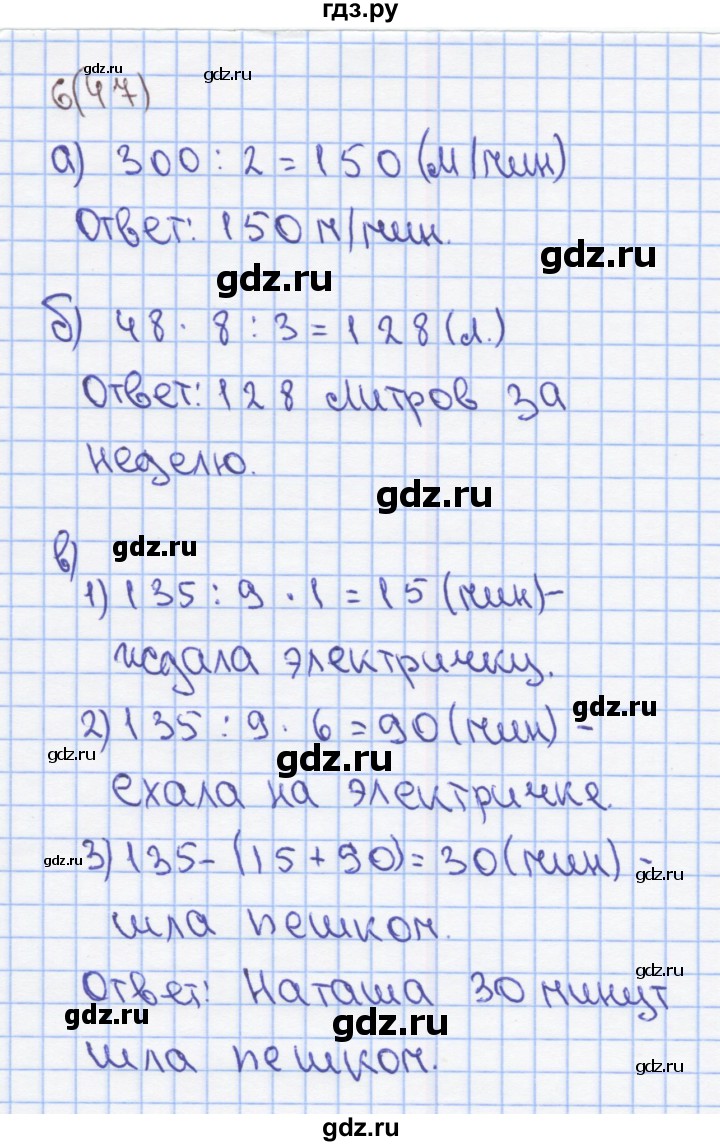 гдз.ру
gdz.ru
gdz.ru
6(47)
а) 300 : 2 = 150 (м/мин)
Ответ: 150 м/мин.
gdz.ru
gdz.ru
б) 48 · 8 : 3 = 128 (л.)
Ответ: 128 литров за
неделю.
gdz.ru
gdz.ru
в)
1) 135 : 9 · 1 = 15 (мин) -
ждала электричку.
gdz.ru
2) 135 : 9 · 6 = 90 (мин) -
gdz.ru
gdz.ru
ехала на электричке.
3) 135 - (15 + 90) = 30 (мин) -
gdz.ru
gdz.ru
шла пешком.
gdz.ru
Ответ: Наташа 30 минут
gdz.ru
gdz.ru
шла пешком.
gdz.ru
gdz.ru